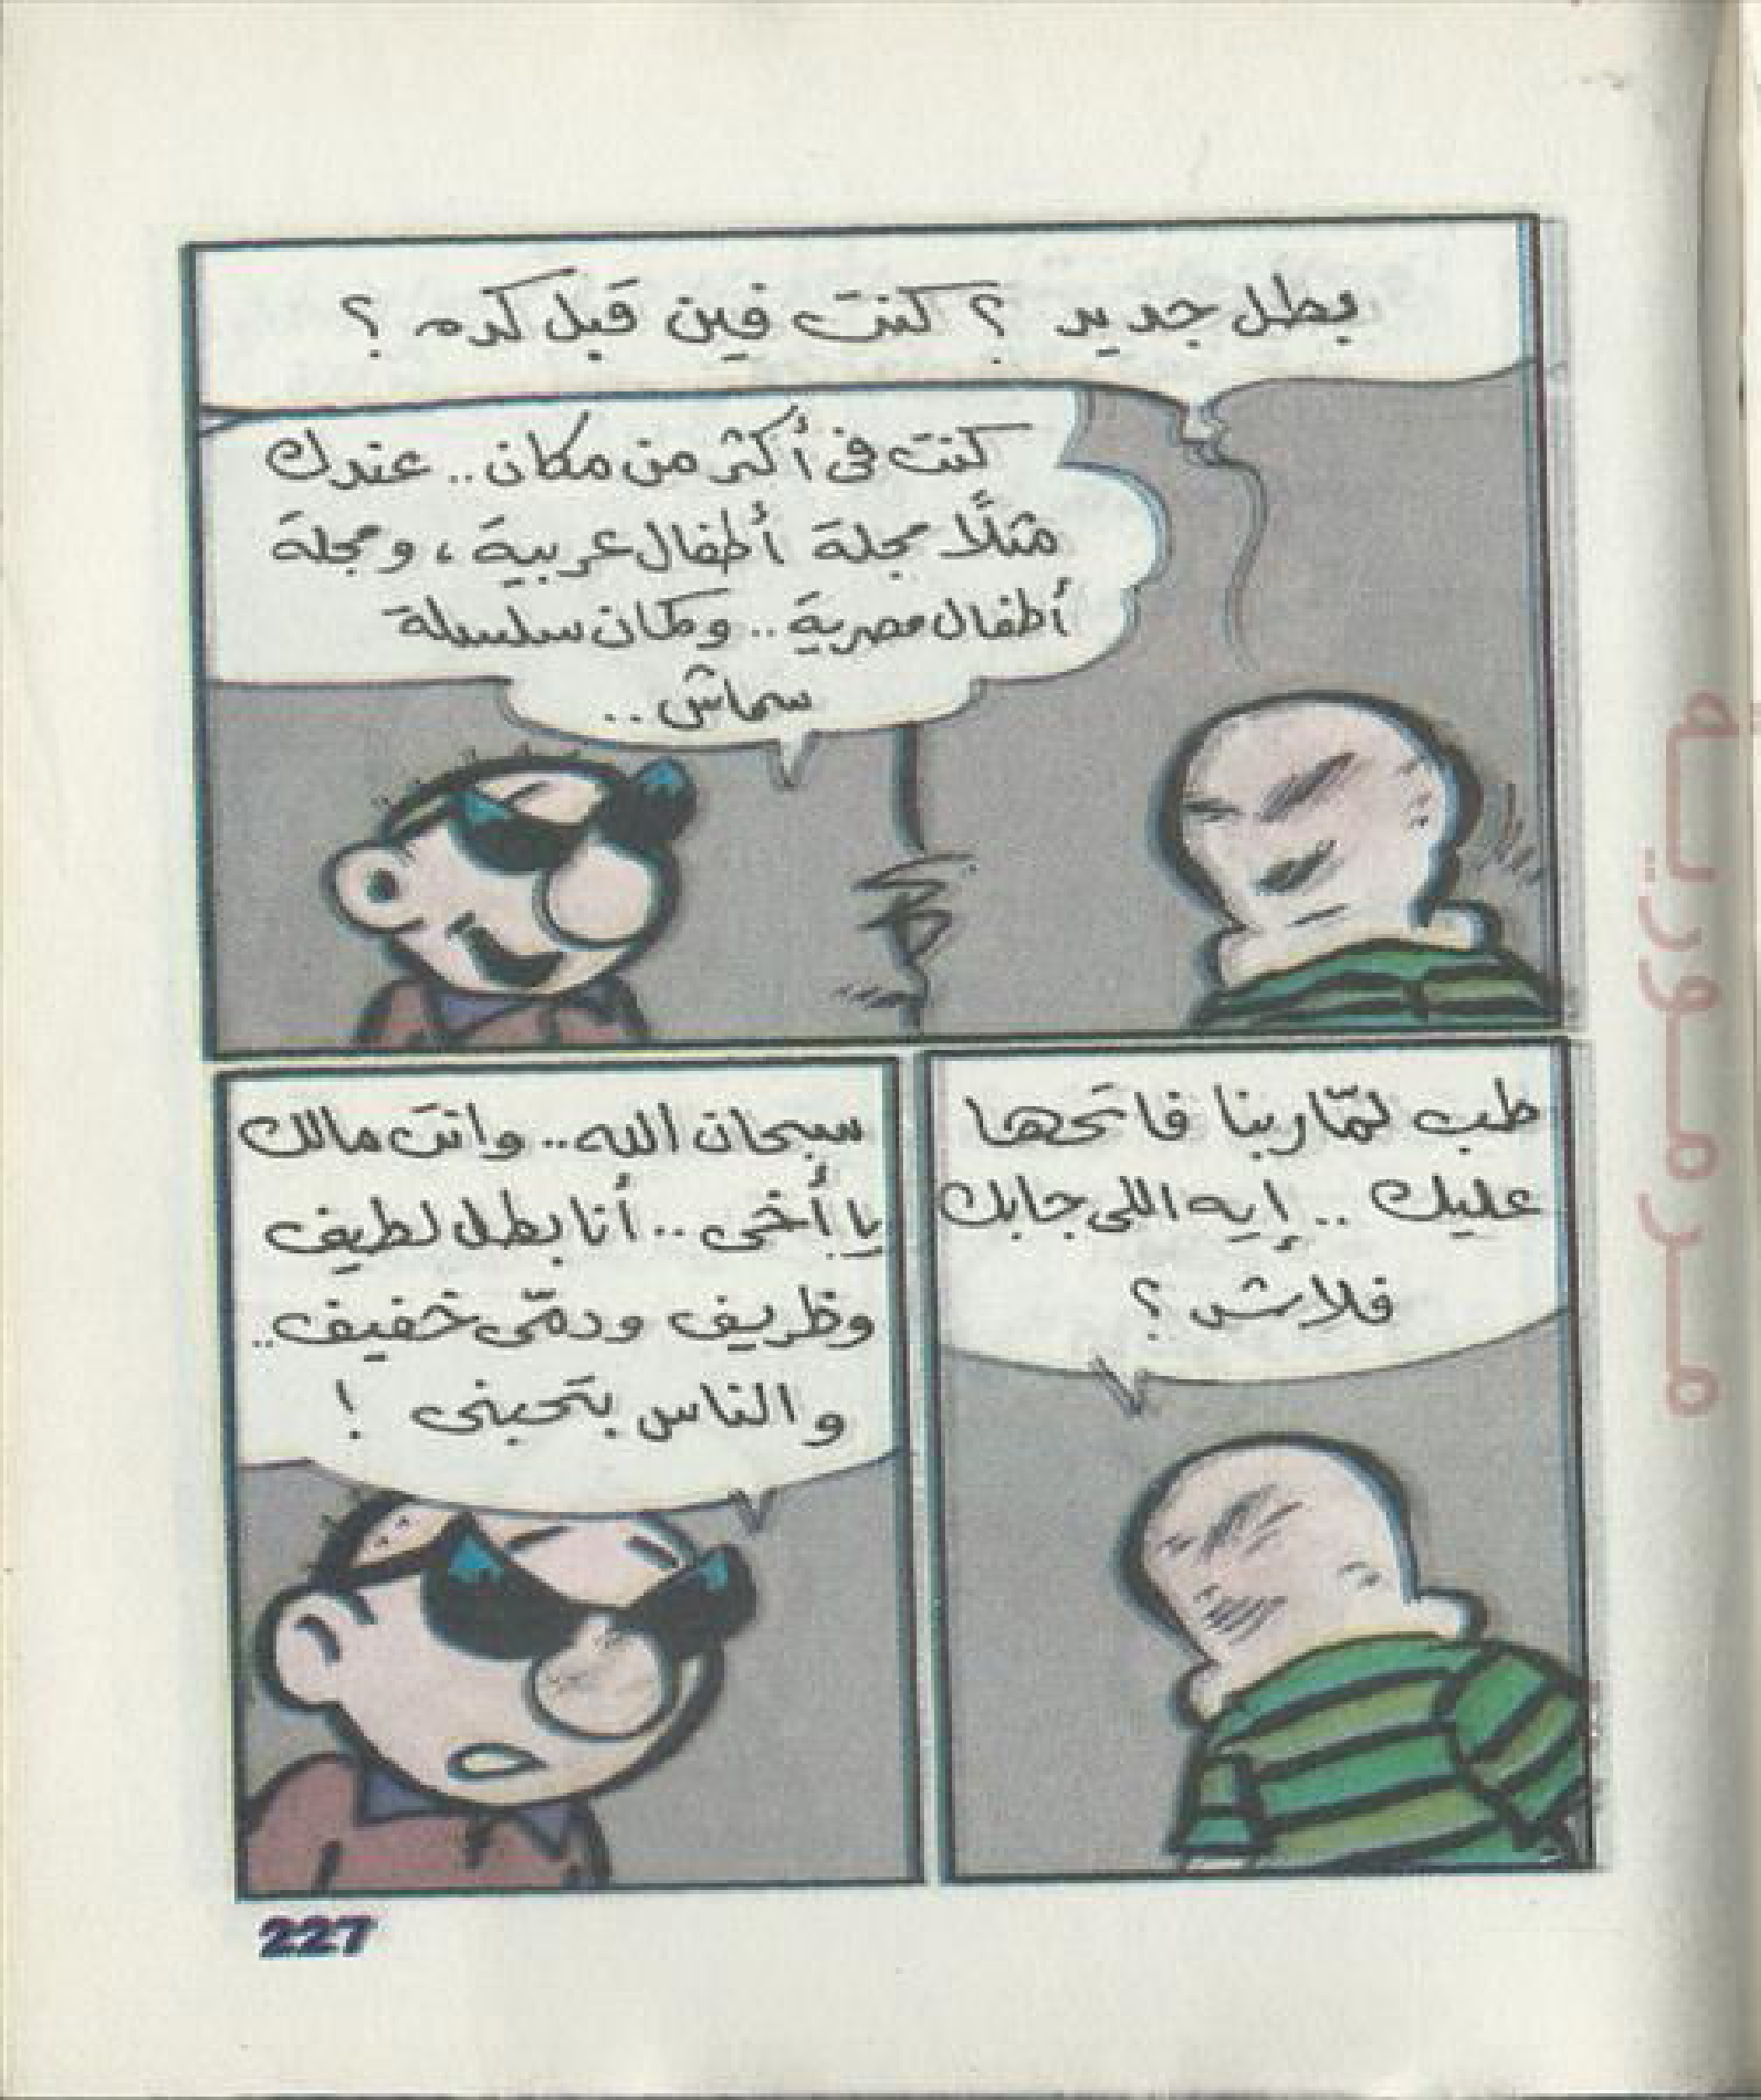 بطل جديد ؟ كنت فين قبل كده ؟
كنت فى أكثر من مكان .. عندك
مثلًا مجلة أطفال عربية ، ومجلة
أطفال مصرية .. وكمان سلسلة
سماش ..
طب لمّا ربنا فاتحها
عليك .. إيه اللى جابك
فلاش ؟
سبحان الله .. وانت مالك
يا أخى .. أنا بطل لطيف
وظريف ودمّى خفيف ..
والناس بتحبنى !
227
مرموريه